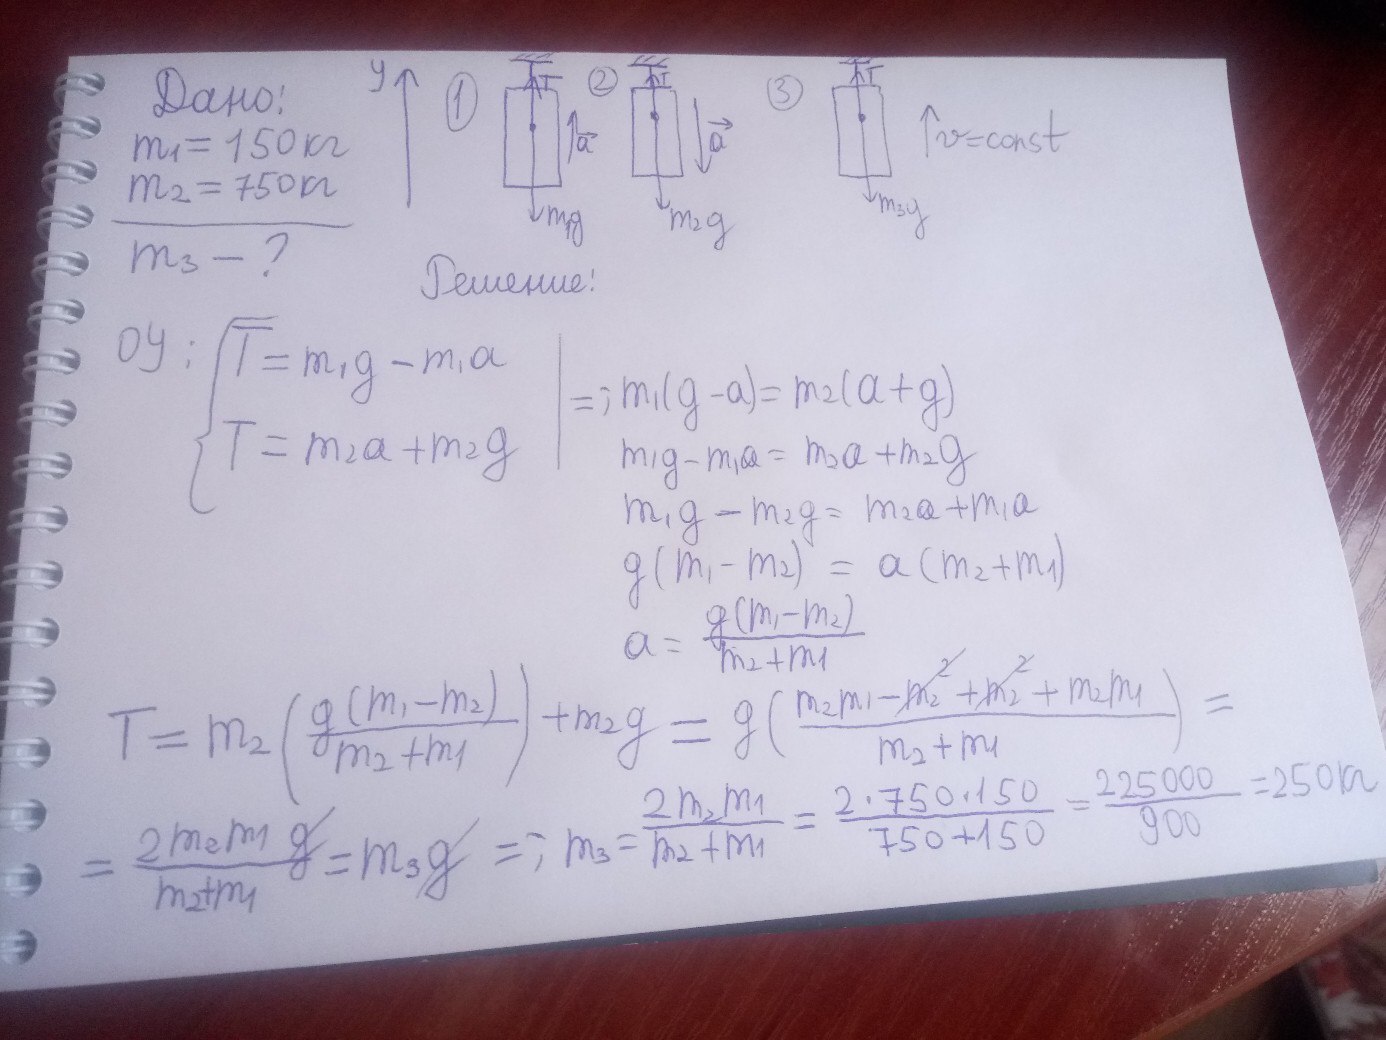 Дано:
m₁ = 150 кг
m₂ = 750 кг
m₃ – ?
y
① T a⃗ m₁g
② T a⃗ m₂g
③ T v = const m₃g
Решение:
OY: { T = m₁g – m₁a
T = m₂a + m₂g
=> m₁(g – a) = m₂(a + g)
m₁g – m₁a = m₂a + m₂g
m₁g – m₂g = m₂a + m₁a
g(m₁ – m₂) = a(m₂ + m₁)
a = g(m₁ – m₂) / m₂ + m₁
T = m₂ (g(m₁ – m₂) / m₂ + m₁) + m₂g = g (m₂m₁ – m₂² + m₂² + m₂m₁ / m₂ + m₁) =
= 2m₂m₁g / m₂ + m₁ = m₃g => m₃ = 2m₂m₁ / m₂ + m₁ = 2·750·150 / 750 + 150 = 225000 / 900 = 250 кг